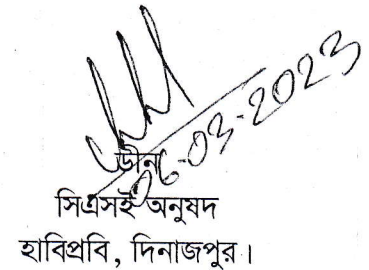 06-03-2023
ডীন
সিএসই অনুষদ
হাবিপ্রবি, দিনাজপুর।